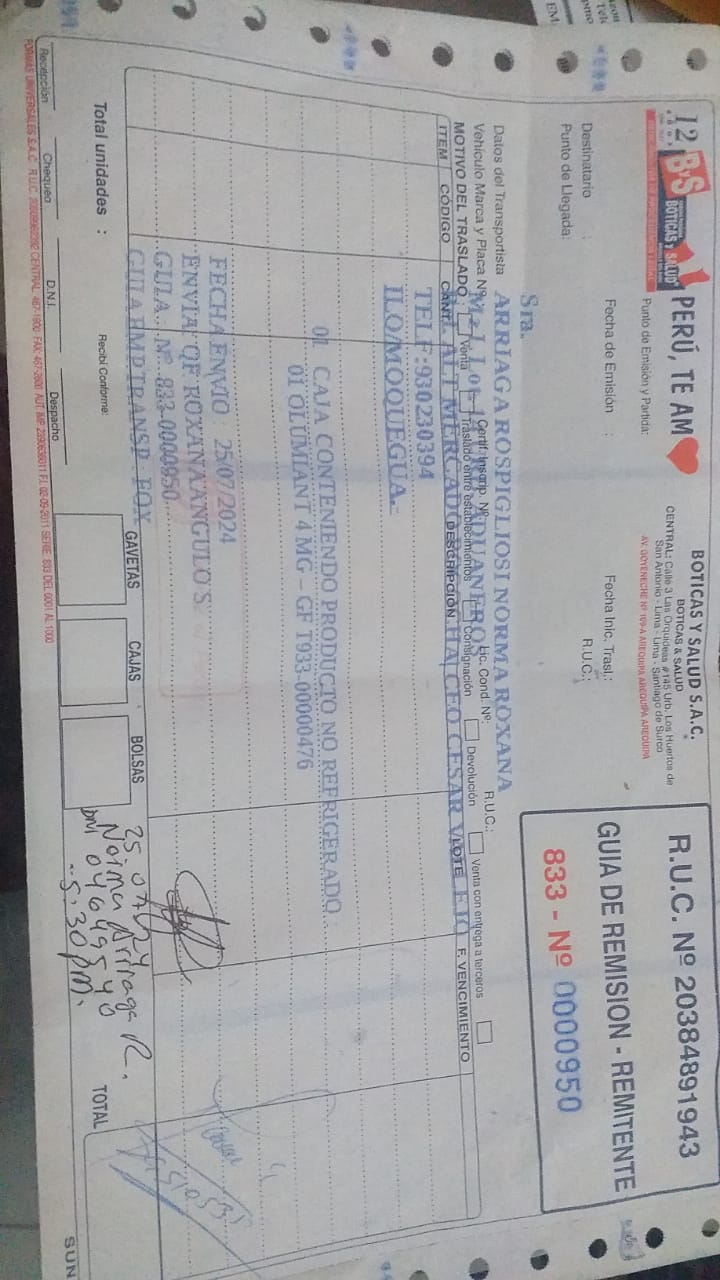 12
B'S BOTICAS y SALUD
PERÚ, TE AM
Punto de Emisión y Partida:
BOTICAS Y SALUD S.A.C.
BOTICAS & SALUD
CENTRAL: Calle 3 Las Orquideas # 145 Urb. Los Huertos de
San Antonio - Lima - Lima - Santiago de Surco
AV. GOYENECHE Nº 109-A AREQUIPA AREQUIPA AREQUIPA
R.U.C. Nº 20384891943
GUIA DE REMISION - REMITENTE
833 - Nº 0000950
Fecha de Emisión :
Fecha Inic. Trasl.:
Destinatario :
R.U.C.:
Punto de Llegada:
Sra.
Datos del Transportista
ARRIAGA ROSPIGLIOSI NORMA ROXANA
R.U.C.:
Vehículo Marca y Placa Nº
Certif. Inscrip. Nº
Lic. Cond. Nº:
MOTIVO DEL TRASLADO :
Venta
Traslado entre establecimientos
Consignación
Devolución
Venta con entrega a terceros
ITEM CÓDIGO CANT. DESCRIPCIÓN LOTE F. VENCIMIENTO
TELF:930230394
ILO/MOQUEGUA.
01 CAJA CONTENIENDO PRODUCTO NO REFRIGERADO
01 OLUMIANT 4 MG – GF T933-00000476
FECHA ENVIO : 25/07/2024
ENVIA: QF ROXANA ANGULO S
GUIA Nº 833-0000950
GUIA EMP TRANSP. FOX
GAVETAS
CAJAS
BOLSAS
TOTAL
25.07.24
Norma Arriaga R.
5:30 pm.
Total unidades :
Recibí Conforme:
Recepción
Chequeo
D.N.I.
Despacho
SUN